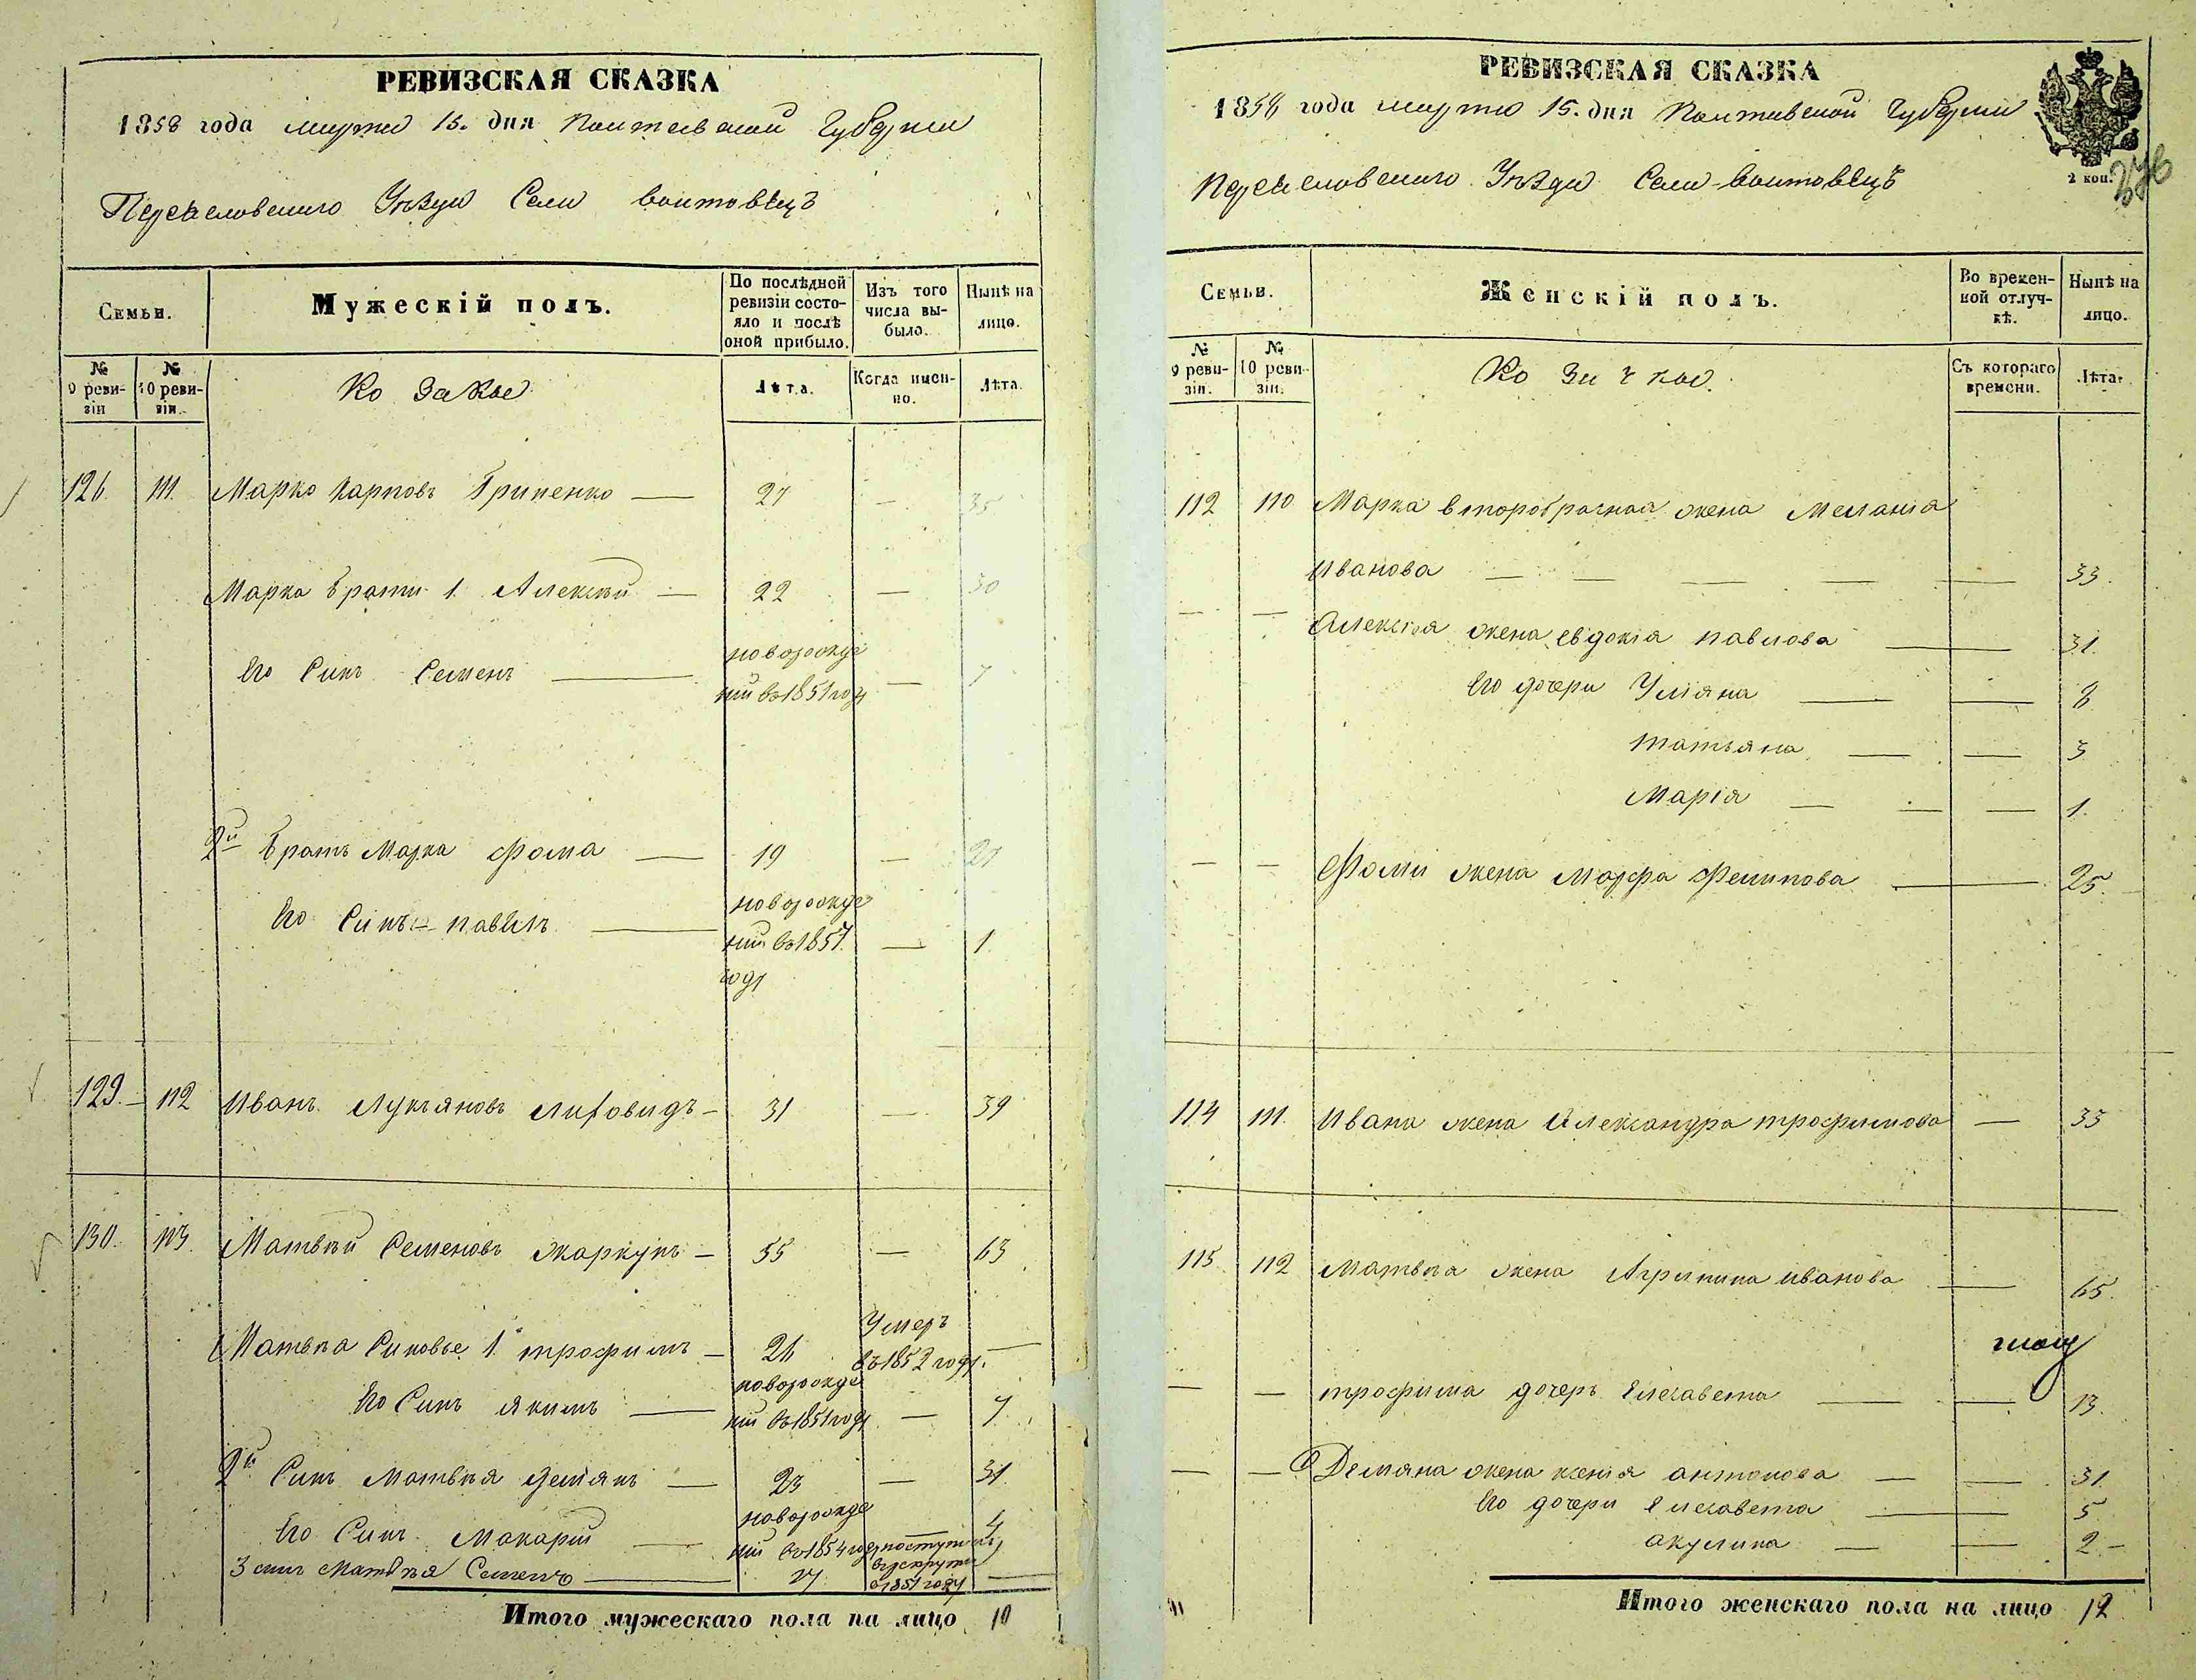 РЕВИЗСКАЯ СКАЗКА
1858 года марта 15. дня Полтавской Губерніи
Переяславскаго Уѣзда Села Воитовецъ
Семьи.
Мужескій полъ.
По послѣдней ревизіи состо-
яло и послѣ
оной прибыло.
Изъ того
числа вы-
было.
Нынѣ на
лицо.
№
9 реви-
зіи
№
10 реви-
зіи.
Козаки
Лѣта.
Когда имен-
но.
Лѣта.
126. 111. Марко Карповъ Гриценко — 27 — 35
Марка брати 1. Алексѣй — 22 — 30
Его Синъ Семенъ — новорожде
ній въ 1851 году — 7
2й братъ Марка Фома — 19 — 27
Его Синъ павелъ — новорожде
ній въ 1857.
году — 1.
129. — 112 Иванъ Лукъяновъ — 31 — 39
130. 113. Матвѣй Семеновъ Жаркунъ — 55 — 63
Матвѣа Синовье 1. трофимъ — 26 Умеръ
въ 1852 году. —
Его Синъ якимъ — новорожде
ній въ 1851 году — 7.
2й Синъ Матвѣя демянъ — 23 — 31
Его Синъ Макарій — новорожде
ній въ 1854 году — 4
3 синъ Матвѣя Семенъ — 17 поступилъ
въ рекруты
въ 1851 году —
Итого мужескаго пола на лицо 10
РЕВИЗСКАЯ СКАЗКА
1858 года марта 15. дня Полтавской Губерніи
Переяславскаго Уѣзда Села Воитовецъ
2 коп.
Семьи.
Женскій полъ.
Во времен-
ной отлуч-
кѣ.
Нынѣ на
лицо.
№
9 реви-
зіи.
№
10 реви-
зіи.
Козачки.
Съ котораго
времени.
Лѣта.
112 110 Марка второбрачная жена Меланіа
Иванова — — — — — 33.
— — Алексѣя жена евдокія павлова — 31.
Его дочери Уліяна — — 8
татьяна — — 3
Марія — — — 1.
— — Фоми жена Марфа Филипова — 25.
114 111. Ивана жена Александра трофимова — 33
115 112 Матвѣа жена Агрипина иванова — 65.
— — трофима дочерь Елисавета — — 13.
— — Демяна жена ксенія антонова — — 31.
Его дочери Елисавета — 5
акулина — — 2. —
Итого женскаго пола на лицо 12